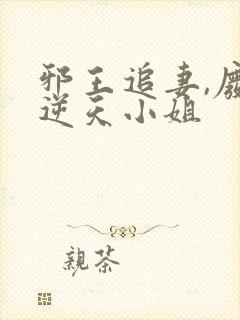 邪王追妻,
逆天小姐
親茶